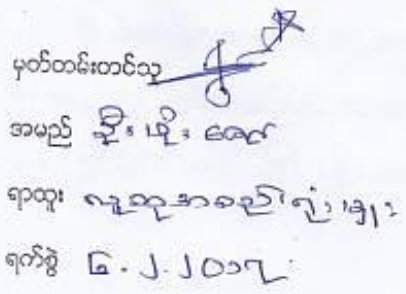 မှတ်တမ်းတင်သူ
အမည် ဦး
ရာထူး လူထုအစည်းရုံးမှူး
ရက်စွဲ ၆.၂.၂၀၁၇